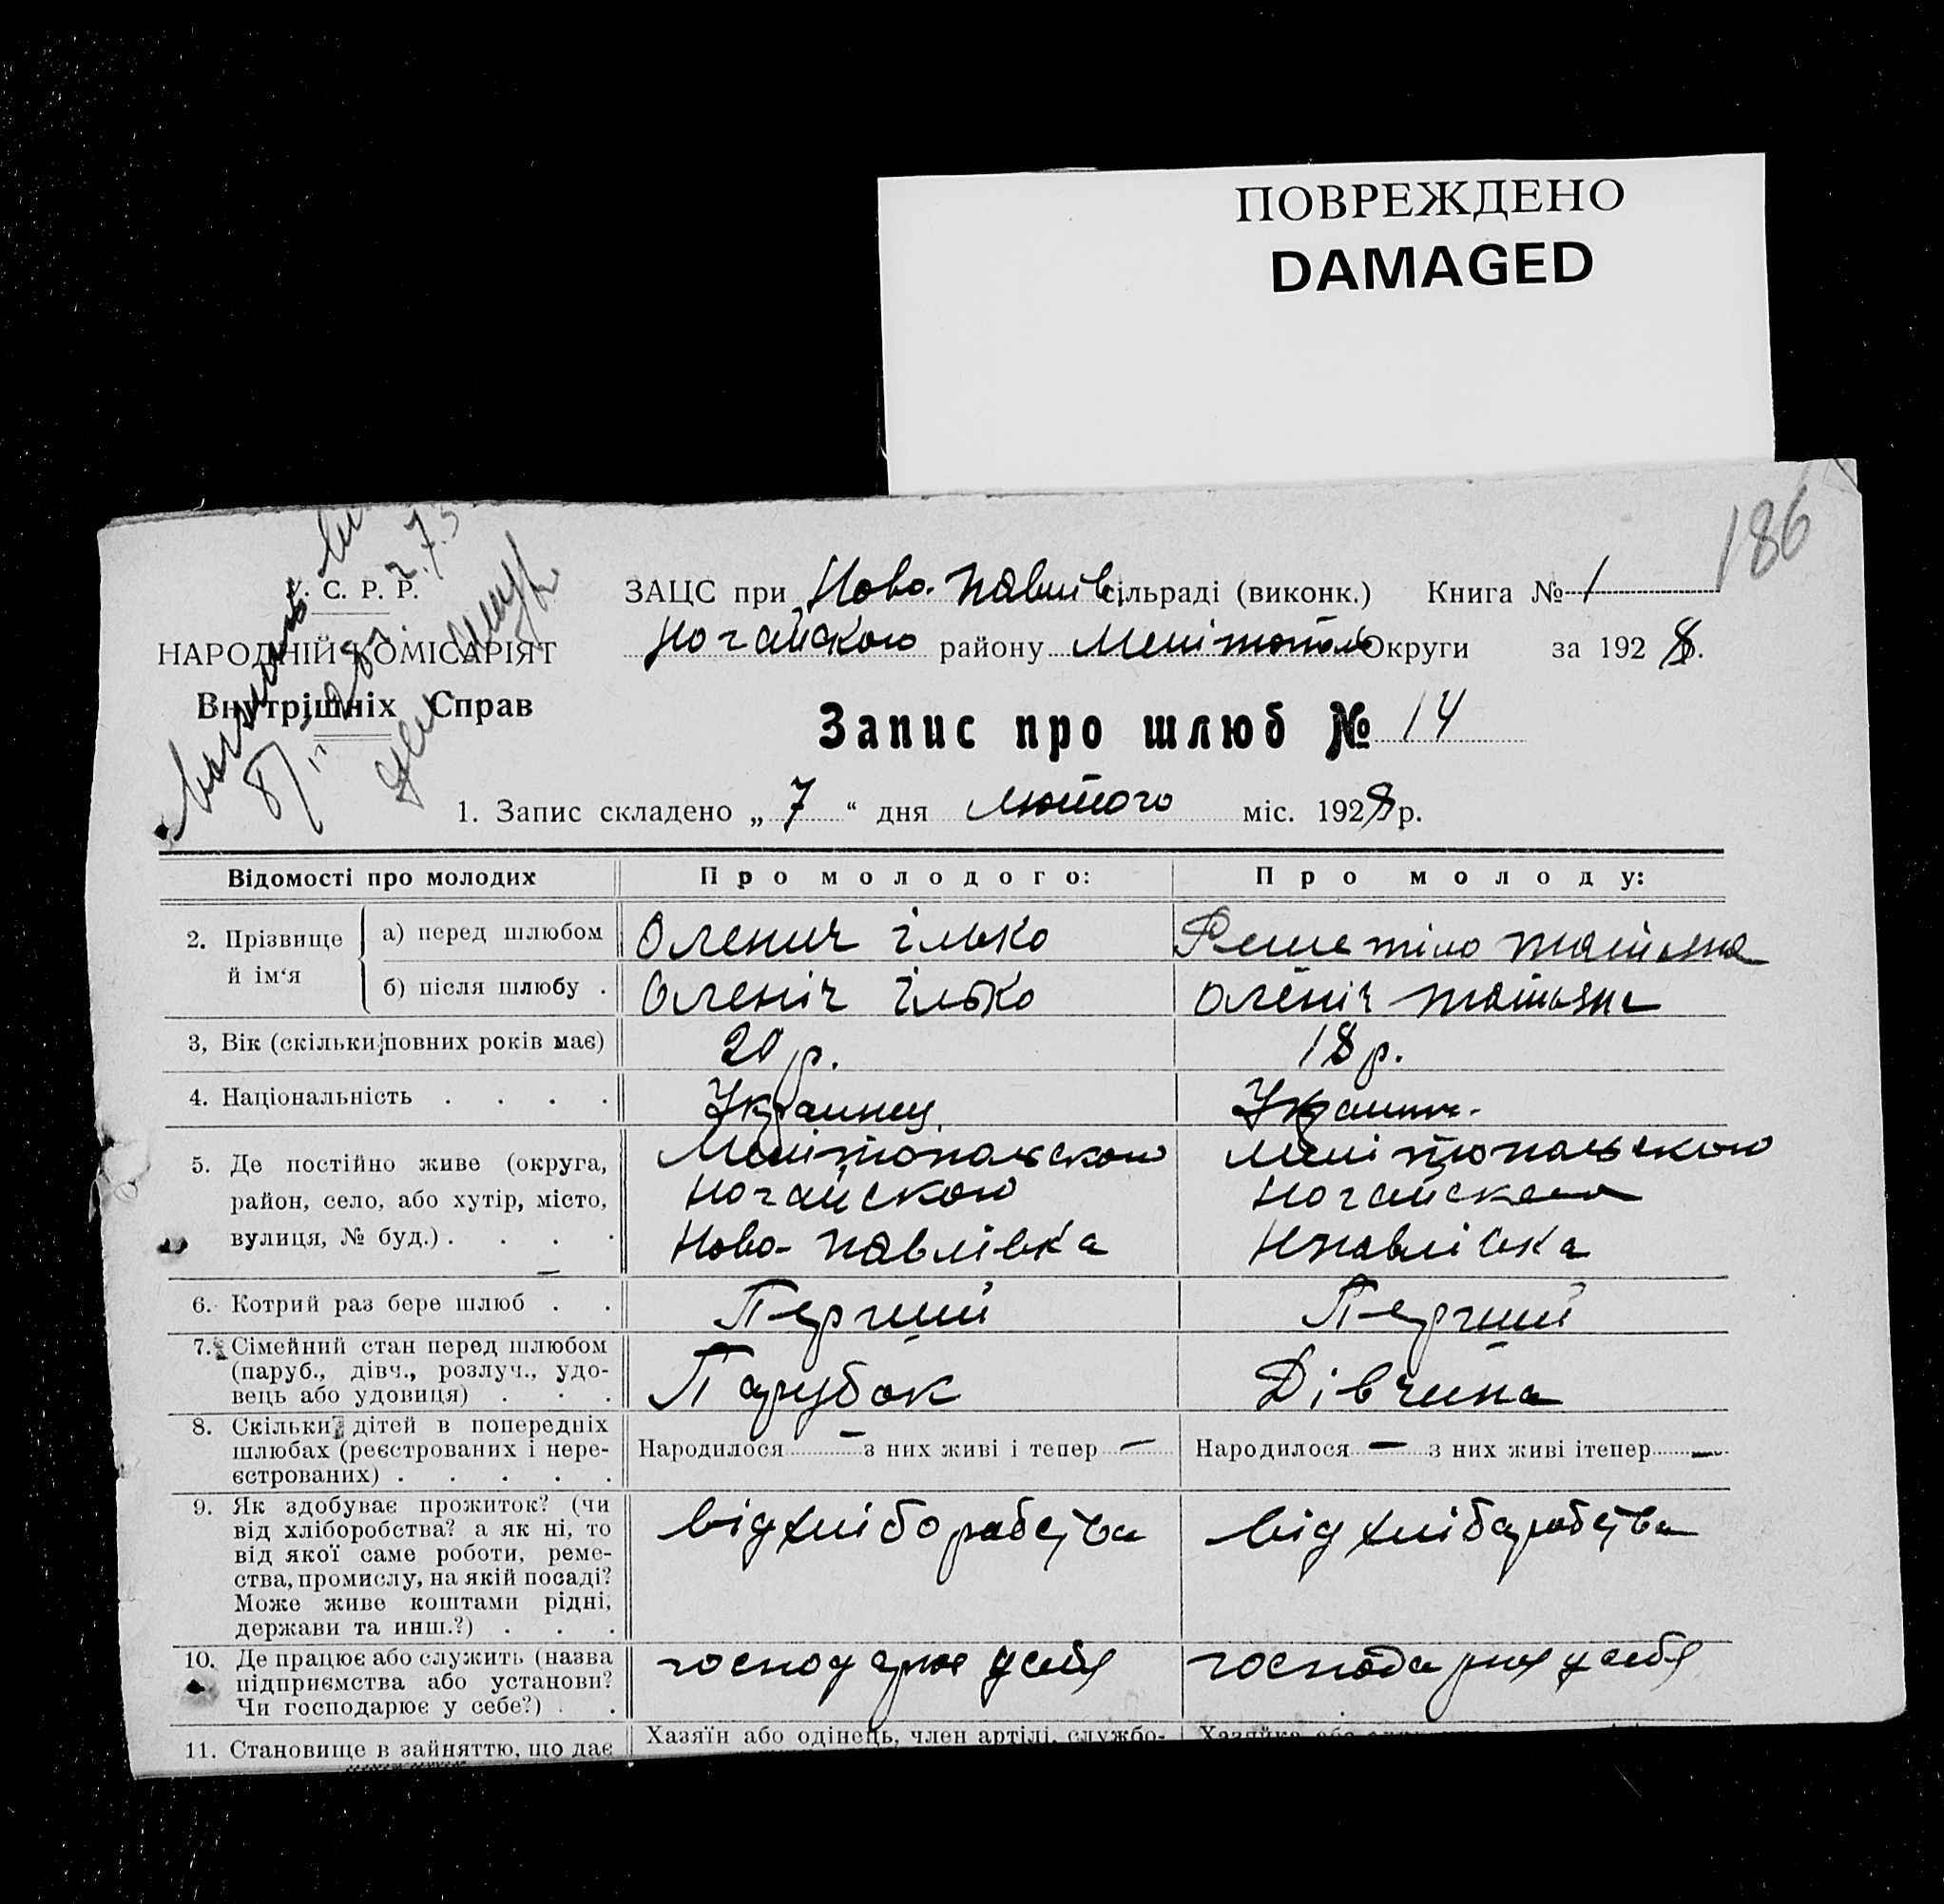 ПОВРЕЖДЕНО
DAMAGED
186
У. С. Р. Р.
НАРОДНІЙ КОМІСАРІЯТ
Внутрішніх Справ
ЗАЦС при Ново-Павлів. сільраді (виконк.) Книга № 1
Ногайского району Мелітополь Округи за 1928 р.
Запис про шлюб № 14
1. Запис складено „ 7 “ дня Лютого міс. 1928 р.
Відомості про молодих Про молодого: Про молоду:
2. Прізвище й ім‘я
а) перед шлюбом Оленич Ілько Решетіло Татьяна
б) після шлюбу . Оленіч Ілько Оленіч Татьяна
3, Вік (скільки повних років має) 20 р. 18 р.
4. Національність . . . . Украинец Украин.
5. Де постійно живе (округа, Мелітопольского Мелітопольского
район, село, або хутір, місто, Ногайского Ногайского
вулиця, № буд.) . . . . Ново-Павлівка НПавлівка
6. Котрий раз бере шлюб . . Перший Перший
7. Сімейний стан перед шлюбом
(паруб., дівч., розлуч., удо-
вець або удовиця) . . . Парубок Дівчина
8. Скільки дітей в попередніх
шлюбах (реєстрованих і нере- Народилося — з них живі і тепер — Народилося — з них живі ітепер —
єстрованих) . . . . .
9. Як здобуває прожиток? (чи
від хліборобства? а як ні, то від хліборобства від хліборобства
від якої саме роботи, реме-
ства, промислу, на якій посаді?
Може живе коштами рідні,
держави та инш.?) . . .
10. Де працює або служить (назва господарює у себе господарює у себе
підприємства або установи?
Чи господарює у себе?) . .
11. Становище в зайняттю, що дає Хазяїн або одінець, член артілі, службо-